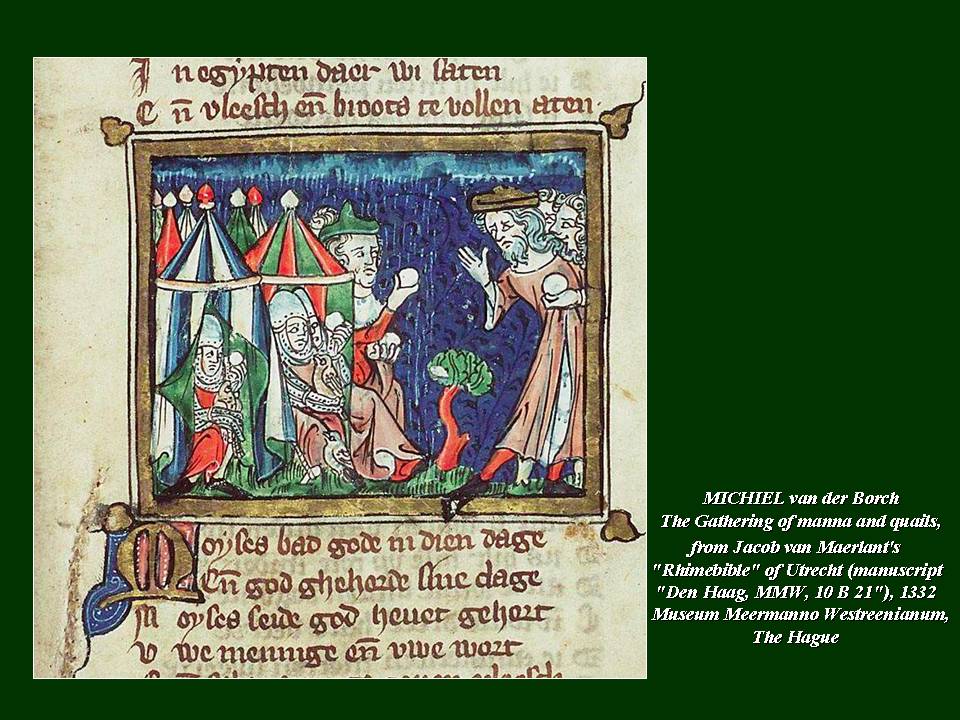 I n egypten daer wi saten
E n̄ vleesch en̄ broots te vollen aten
M oyses bad gode in dien dage
En̄ god ghehorde sine clage
M oyses seide god hevet gehort
V we meninge en̄ vwe wort
MICHIEL van der Borch
The Gathering of manna and quails,
from Jacob van Maerlant's
"Rhimebible" of Utrecht (manuscript
"Den Haag, MMW, 10 B 21"), 1332
Museum Meermanno Westreenianum,
The Hague